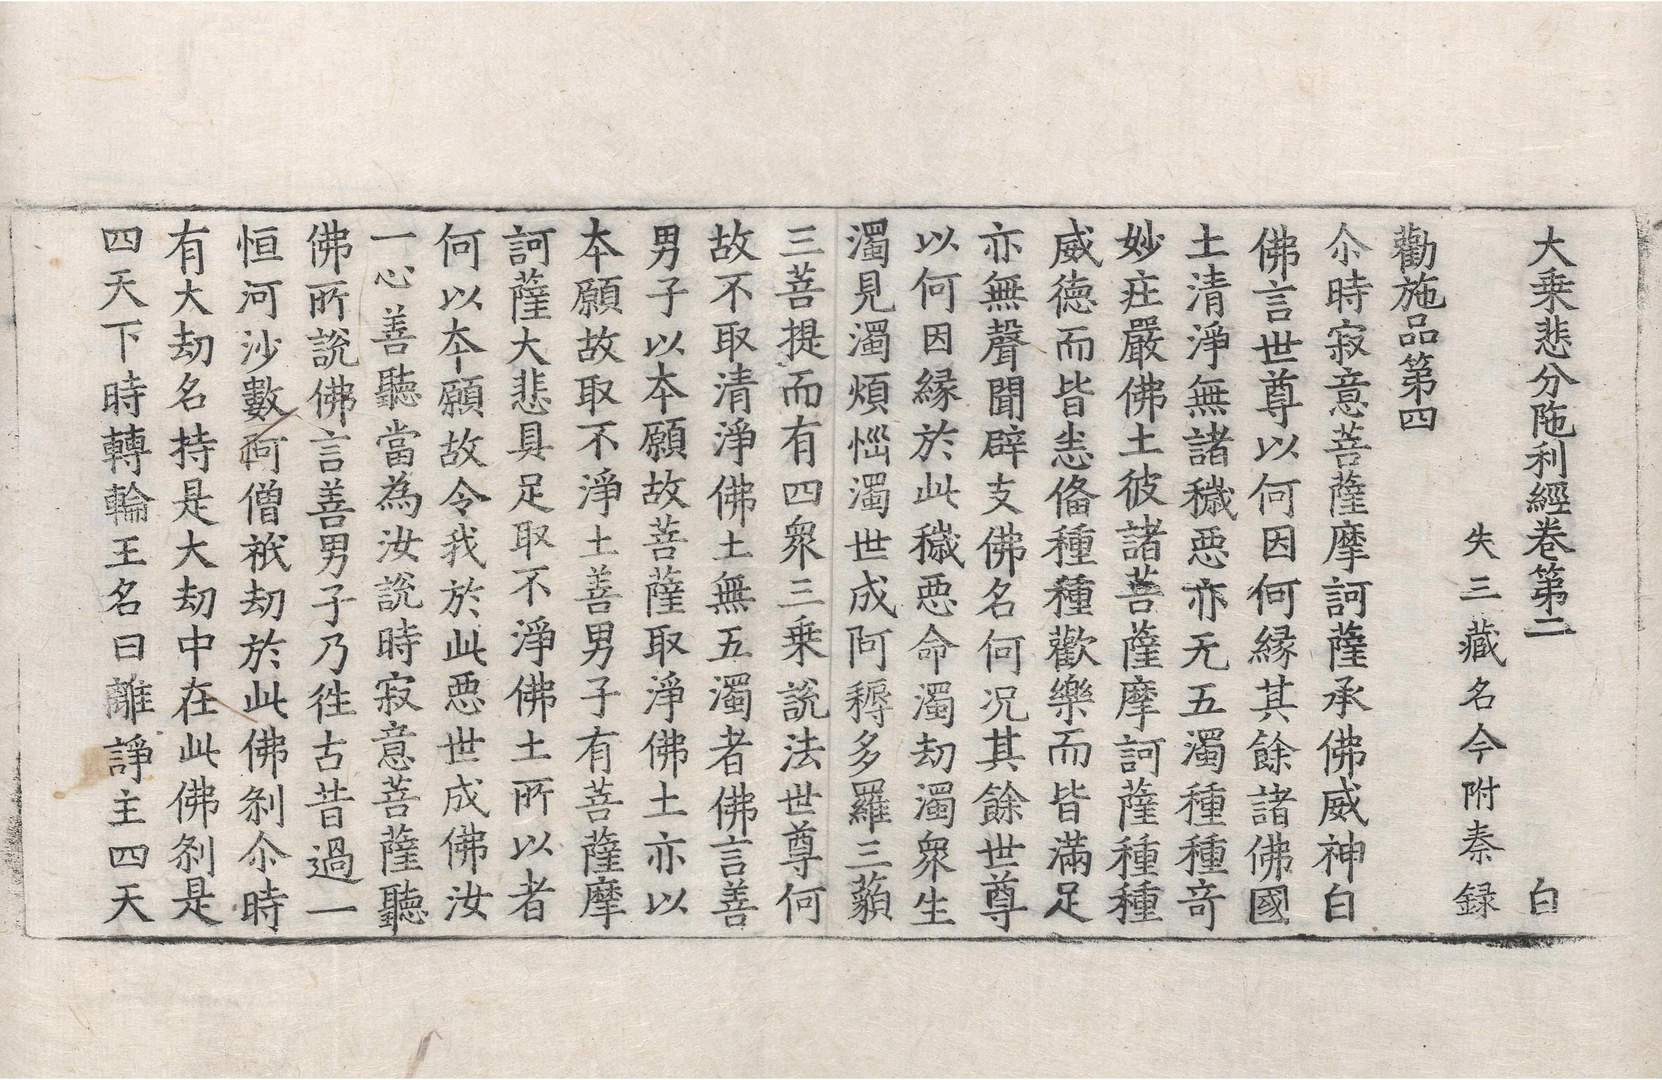 大乗悲分陁利經卷第二 白
失三藏名今附秦録
勸施品第四
尒時寂意菩薩摩訶薩承佛威神白
佛言世尊以何因何縁其餘諸佛國
土清淨無諸穢惡亦无五濁種種竒
妙莊嚴佛土彼諸菩薩摩訶薩種種
威德而皆悉俻種種歡樂而皆滿足
亦無聲聞辟支佛名何况其餘世尊
以何因縁於此穢惡命濁劫濁衆生
濁見濁煩惱濁世成阿耨多羅三藐
三菩提而有四衆三乗說法世尊何
故不取清淨佛土無五濁者佛言善
男子以本願故菩薩取淨佛土亦以
本願故取不淨土善男子有菩薩摩
訶薩大悲具足取不淨佛土所以者
何以本願故令我於此惡世成佛汝
一心善聽當為汝說時寂意菩薩聽
佛所說佛言善男子乃徃古昔過一
恒河沙數阿僧祇劫於此佛刹尒時
有大劫名持是大劫中在此佛刹是
四天下時轉輪王名曰離諍主四天